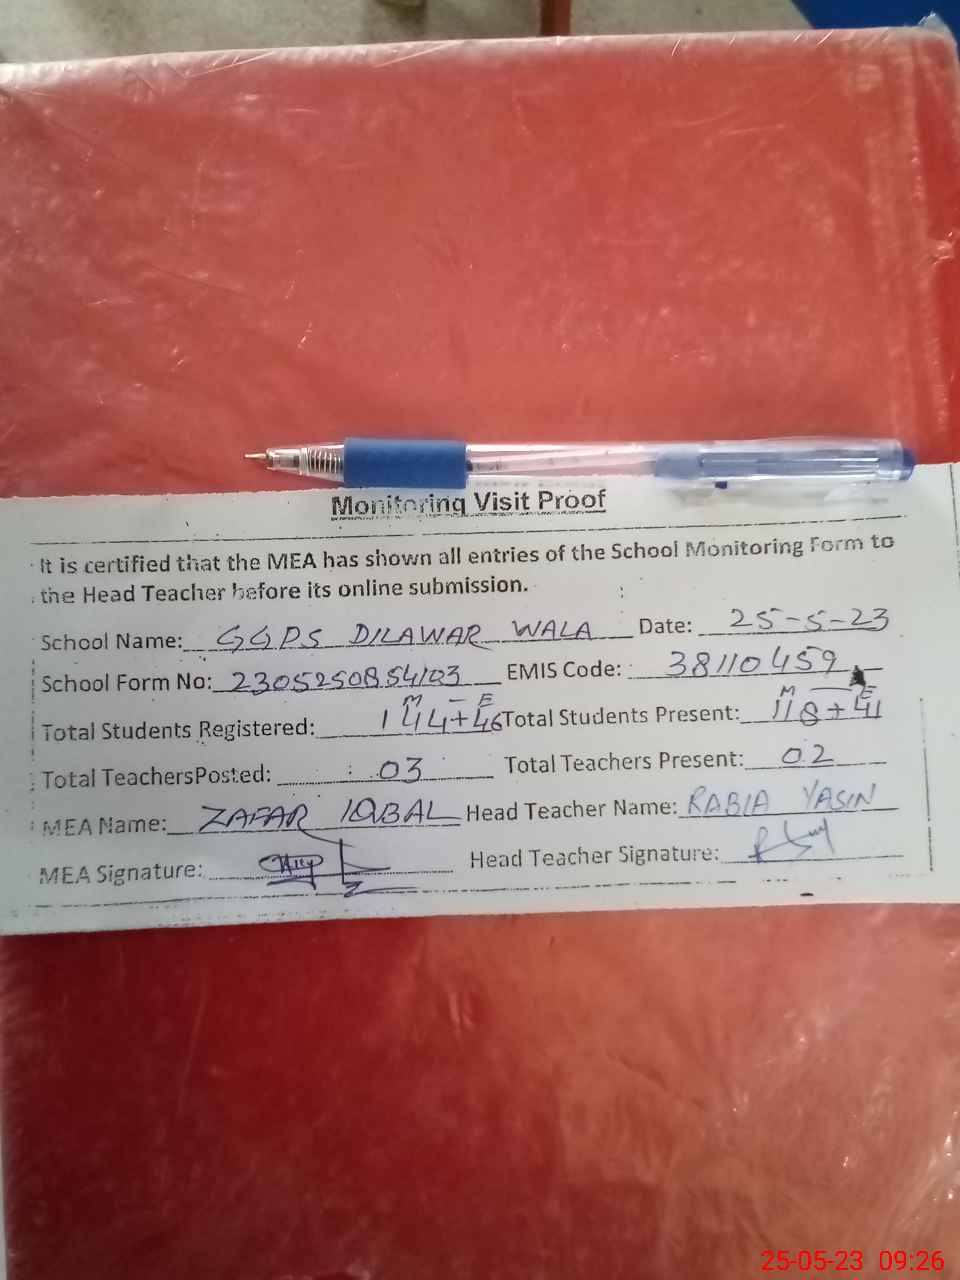 Monitoring Visit Proof
It is certified that the MEA has shown all entries of the School Monitoring Form to
the Head Teacher before its online submission.
School Name: GGPS DILAWAR WALA Date: 25-5-23
School Form No: 2305250854103 EMIS Code: 38110459
M E M E
Total Students Registered: 144+46 Total Students Present: 118+41
Total TeachersPosted: 03 Total Teachers Present: 02
MEA Name: ZAFAR IQBAL Head Teacher Name: RABIA YASIN
MEA Signature: Head Teacher Signature:
25-05-23 09:26